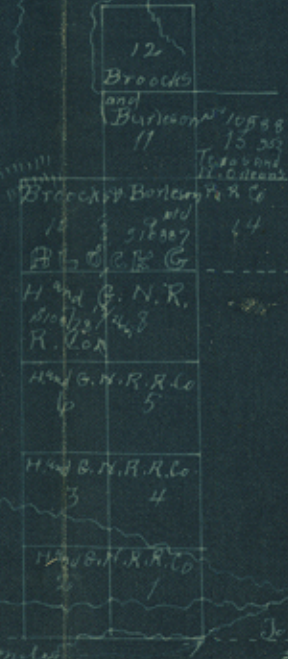 12
Broocks
and
Burleson
11
13
Texas and
N. Orleans
R R Co
14
Broocks & Burleson
10 9
BLOCK G
H and G. N. R.
7 8
R. Co.
H and G. N. R. R. Co
6 5
H and G. N. R. R. Co.
3 4
H and G. N. R. R. Co
2 1